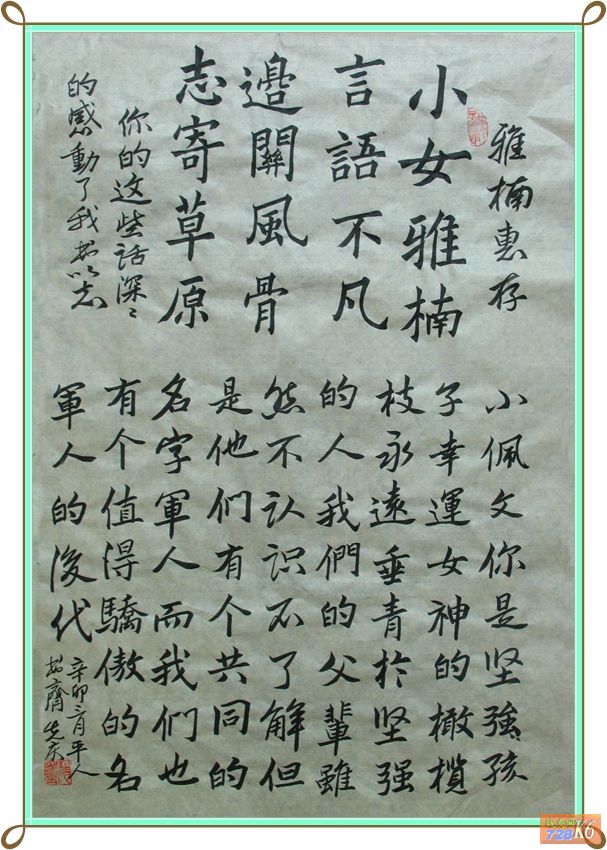 雅楠惠存
小女雅楠
言語不凡
邊關風骨
志寄草原
你的这些话深〻
的感動了我书以志
小佩文你是坚強孩
子幸運女神的橄欖
枝永遠垂青於坚强
的人我們的父輩雖
然不认识不了解但
是他们有个共同的
名字軍人而我们也
有个值得驕傲的名
軍人的後代
辛卯二月平人
728
K6